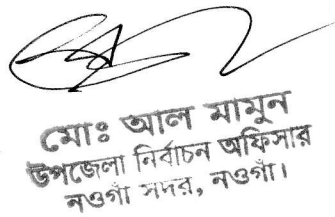 মোঃ আল মামুন
উপজেলা নির্বাচন অফিসার
নওগাঁ সদর, নওগাঁ।